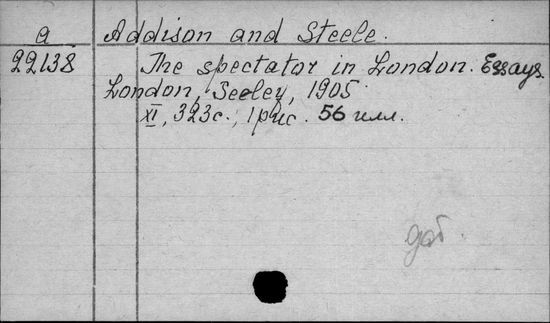 a Addison and Steele.
22138 The spectator in London. Essays.
London, Seeley, 1905
XI, 323с., 1 рис. 56 илл.